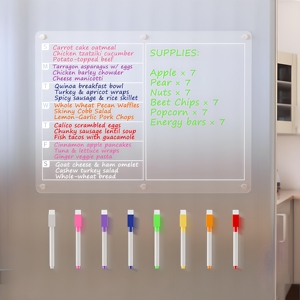 M Carrot cake oatmeal
Chicken tzatziki cucumber
Potato-topped beef
Tarragon asparagus w/ eggs
Chicken barley chowder
Cheese manicotti
T Quinoa breakfast bowl
Turkey & apricot wraps
Spicy sausage & rice skillet
W Whole Wheat Pecan Waffles
Skinny Cobb Salad
Lemon-Garlic Pork Chops
Calico scrambled eggs
Chunky sausage lentil soup
Fish tacos with guacamole
F Cinnamon apple pancakes
Tuna & lettuce wraps
Ginger veggie pasta
S Goat cheese & ham omelet
Cashew turkey salad
Whole-wheat bread
SUPPLIES:
Apple × 7
Pear × 7
Nuts × 7
Beet Chips × 7
Popcorn × 7
Energy bars × 7